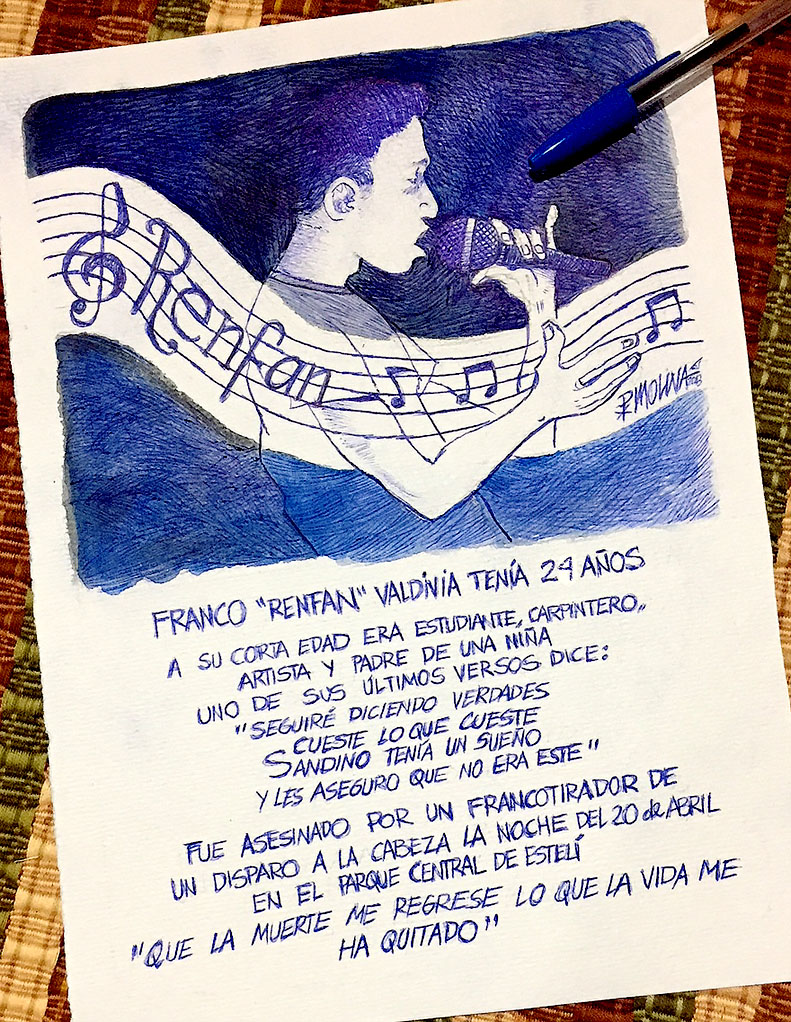 Renfan
P. MOLINA
FRANCO "RENFAN" VALDIVIA TENÍA 24 AÑOS
A SU CORTA EDAD ERA ESTUDIANTE, CARPINTERO,
ARTISTA Y PADRE DE UNA NIÑA
UNO DE SUS ÚLTIMOS VERSOS DICE:
"SEGUIRÉ DICIENDO VERDADES
CUESTE LO QUE CUESTE
SANDINO TENÍA UN SUEÑO
Y LES ASEGURO QUE NO ERA ESTE"
FUE ASESINADO POR UN FRANCOTIRADOR DE
UN DISPARO A LA CABEZA LA NOCHE DEL 20 de ABRIL
EN EL PARQUE CENTRAL DE ESTELÍ
"QUE LA MUERTE ME REGRESE LO QUE LA VIDA ME
HA QUITADO"